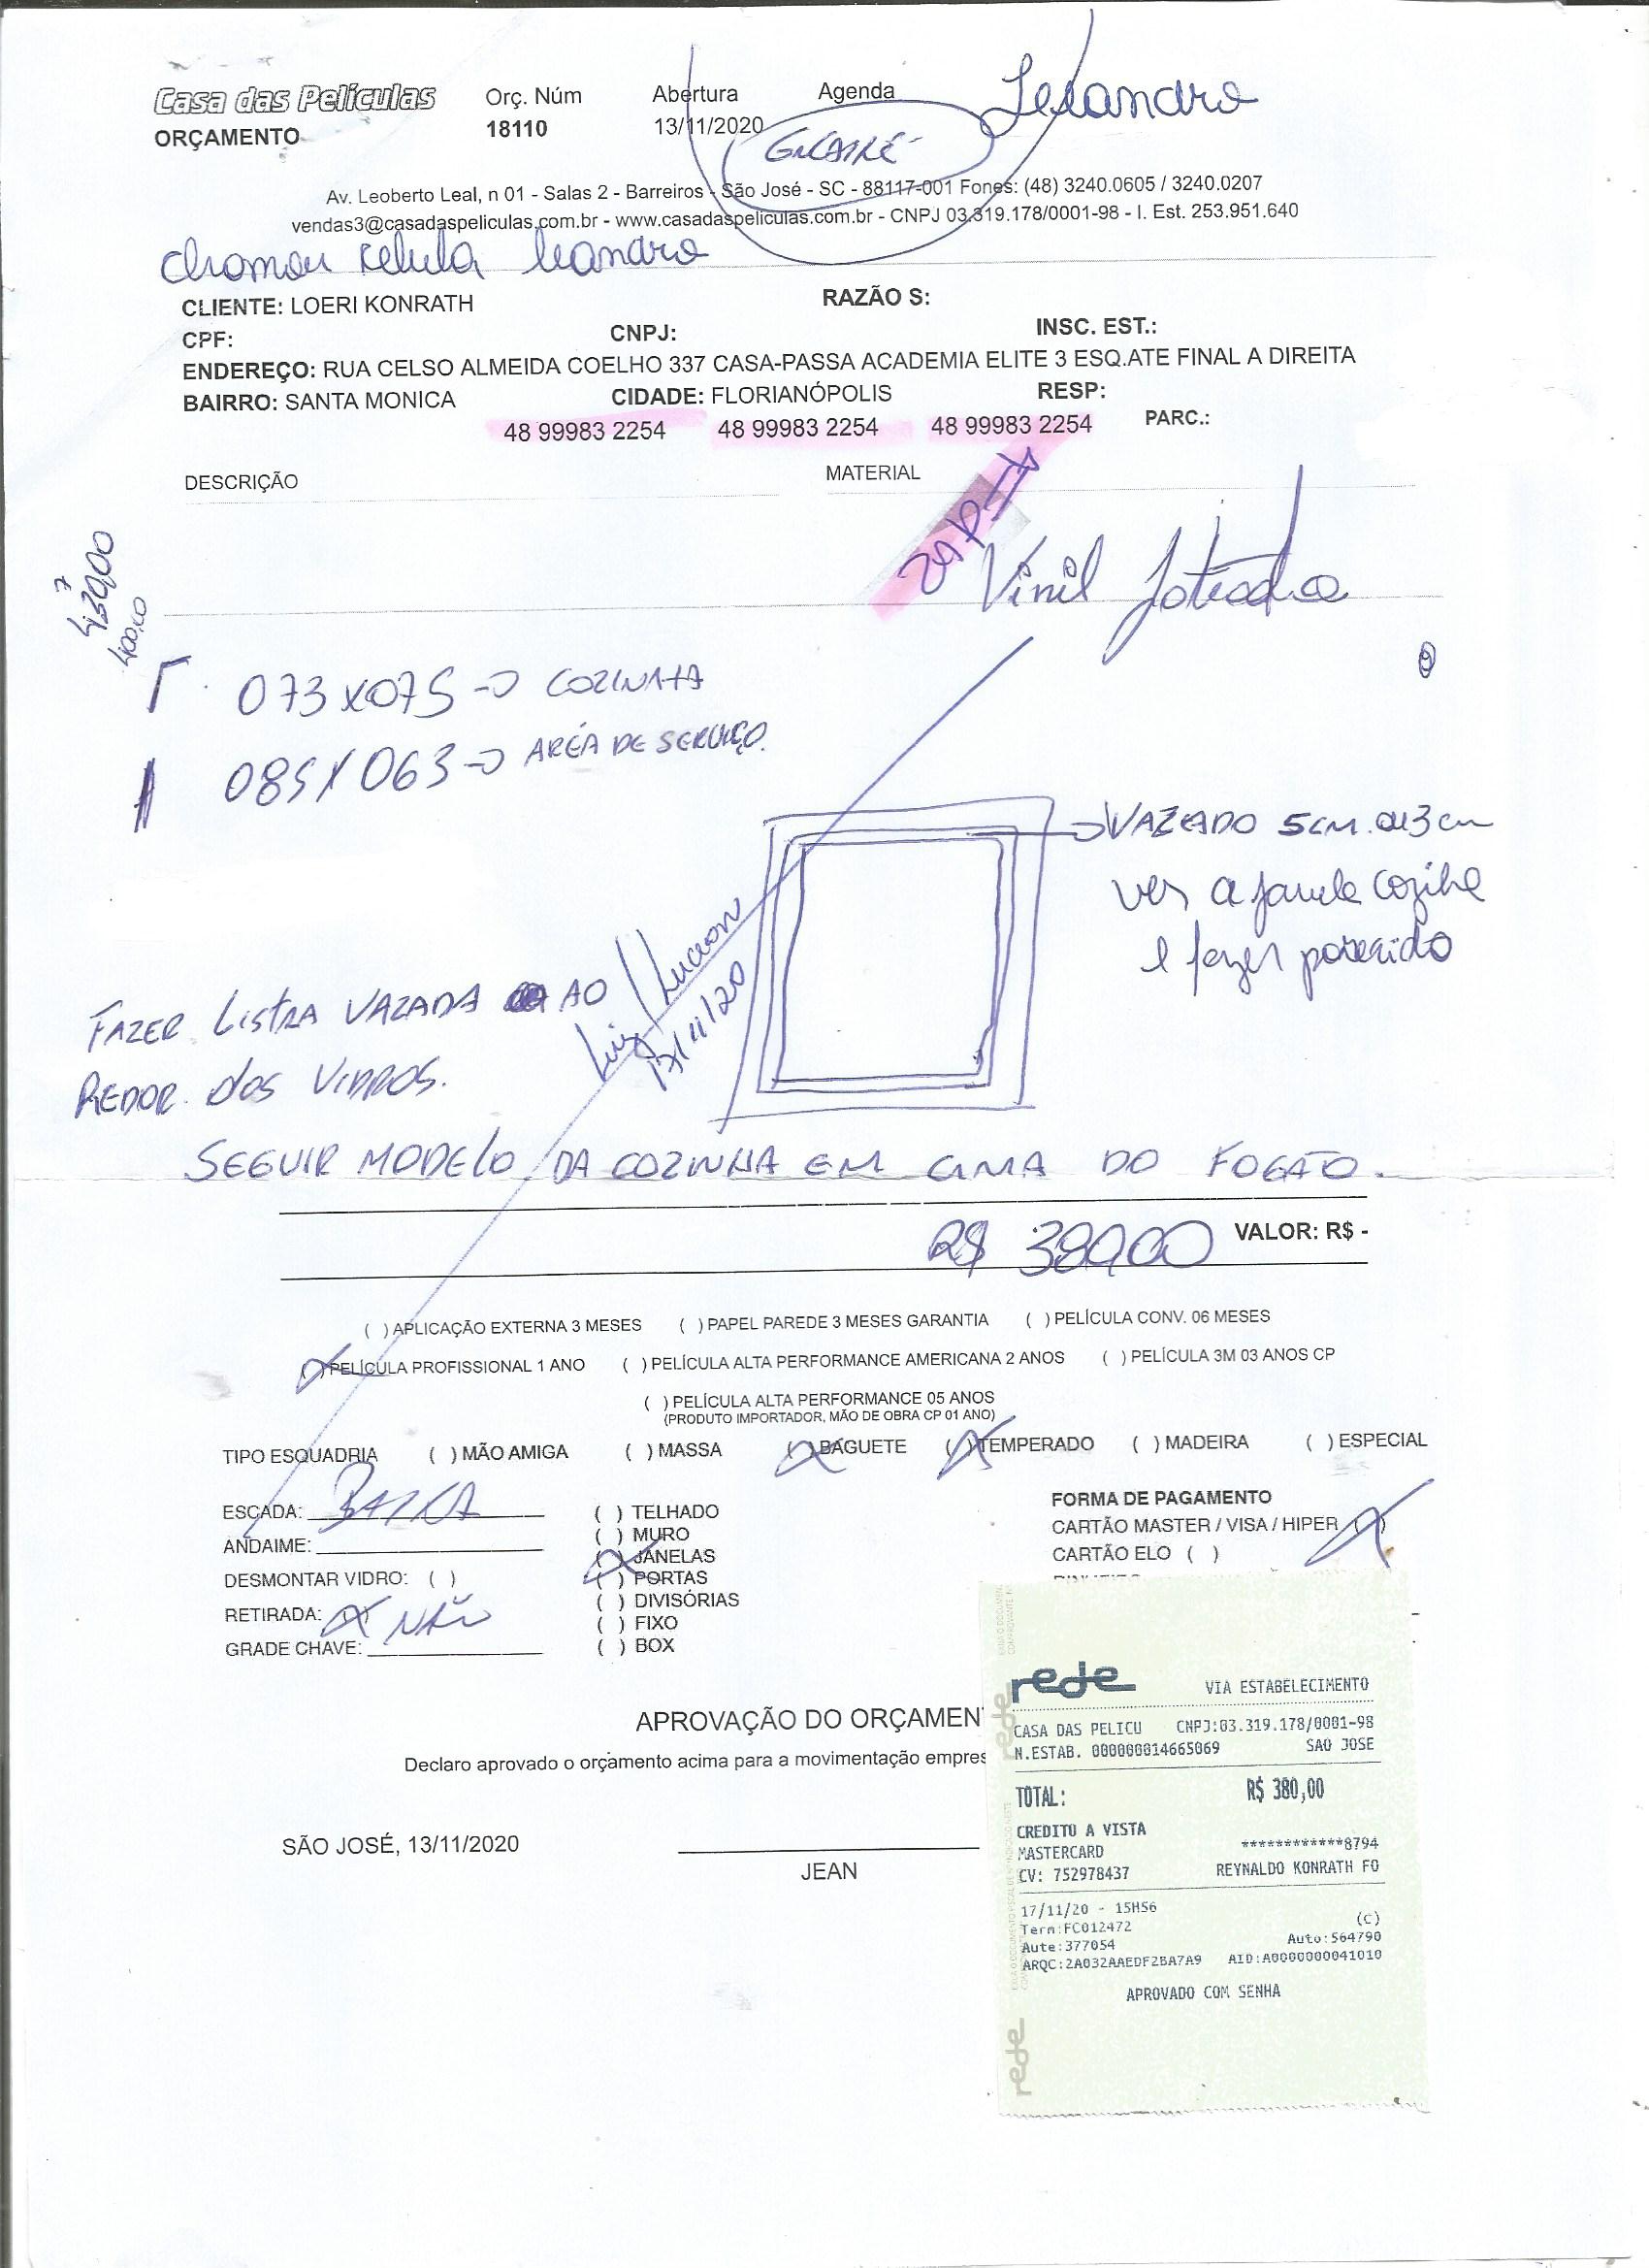 Casa das Películas
ORÇAMENTO
Orç. Núm
18110
Abertura
13/11/2020
Agenda
Leandro
Av. Leoberto Leal, n 01 - Salas 2 - Barreiros - São José - SC - 88117-001 Fones: (48) 3240.0605 / 3240.0207
vendas3@casadaspeliculas.com.br - www.casadaspeliculas.com.br - CNPJ 03.319.178/0001-98 - I. Est. 253.951.640
chamou celula leandro
CLIENTE: LOERI KONRATH RAZÃO S:
CPF: CNPJ: INSC. EST.:
ENDEREÇO: RUA CELSO ALMEIDA COELHO 337 CASA-PASSA ACADEMIA ELITE 3 ESQ.ATE FINAL A DIREITA
BAIRRO: SANTA MONICA CIDADE: FLORIANÓPOLIS RESP:
48 99983 2254 48 99983 2254 48 99983 2254 PARC.:
DESCRIÇÃO MATERIAL
zap
Vinil Jateado
430,00
400,00
073x075 -> COZINHA
085x063 -> AREÁ DE SERVIÇO.
-> VAZEADO 5cm. ou 3cm
ver a janela cozinha
e fazer parecido
Luiz / Lucian
17/11/20
FAZER LISTRA VAZADA AO
REDOR dos VIDROS.
SEGUIR MODELO DA COZINHA EM CIMA DO FOGÃO.
R$ 380,00 VALOR: R$ -
( ) APLICAÇÃO EXTERNA 3 MESES ( ) PAPEL PAREDE 3 MESES GARANTIA ( ) PELÍCULA CONV. 06 MESES
(X) PELÍCULA PROFISSIONAL 1 ANO ( ) PELÍCULA ALTA PERFORMANCE AMERICANA 2 ANOS ( ) PELÍCULA 3M 03 ANOS CP
( ) PELÍCULA ALTA PERFORMANCE 05 ANOS
(PRODUTO IMPORTADOR, MÃO DE OBRA CP 01 ANO)
TIPO ESQUADRIA ( ) MÃO AMIGA ( ) MASSA (X) BAGUETE (X) TEMPERADO ( ) MADEIRA ( ) ESPECIAL
ESCADA: BAIXA
ANDAIME:
DESMONTAR VIDRO: ( )
RETIRADA: (X) NÃO
GRADE CHAVE:
( ) TELHADO
( ) MURO
(X) JANELAS
( ) PORTAS
( ) DIVISÓRIAS
( ) FIXO
( ) BOX
FORMA DE PAGAMENTO
CARTÃO MASTER / VISA / HIPER (X)
CARTÃO ELO ( )
APROVAÇÃO DO ORÇAMEN
Declaro aprovado o orçamento acima para a movimentação empres
SÃO JOSÉ, 13/11/2020
JEAN
rede VIA ESTABELECIMENTO
CASA DAS PELICU CNPJ:03.319.178/0001-98
N.ESTAB. 000000014665069 SAO JOSE
TOTAL: R$ 380,00
CREDITO A VISTA
MASTERCARD ************8794
CV: 752978437 REYNALDO KONRATH FO
17/11/20 - 15H56
Term:FC012472 (C)
Aute:377054 Auto:564790
ARQC:2A032AAEDF2BA7A9 AID:A0000000041010
APROVADO COM SENHA
rede
rede